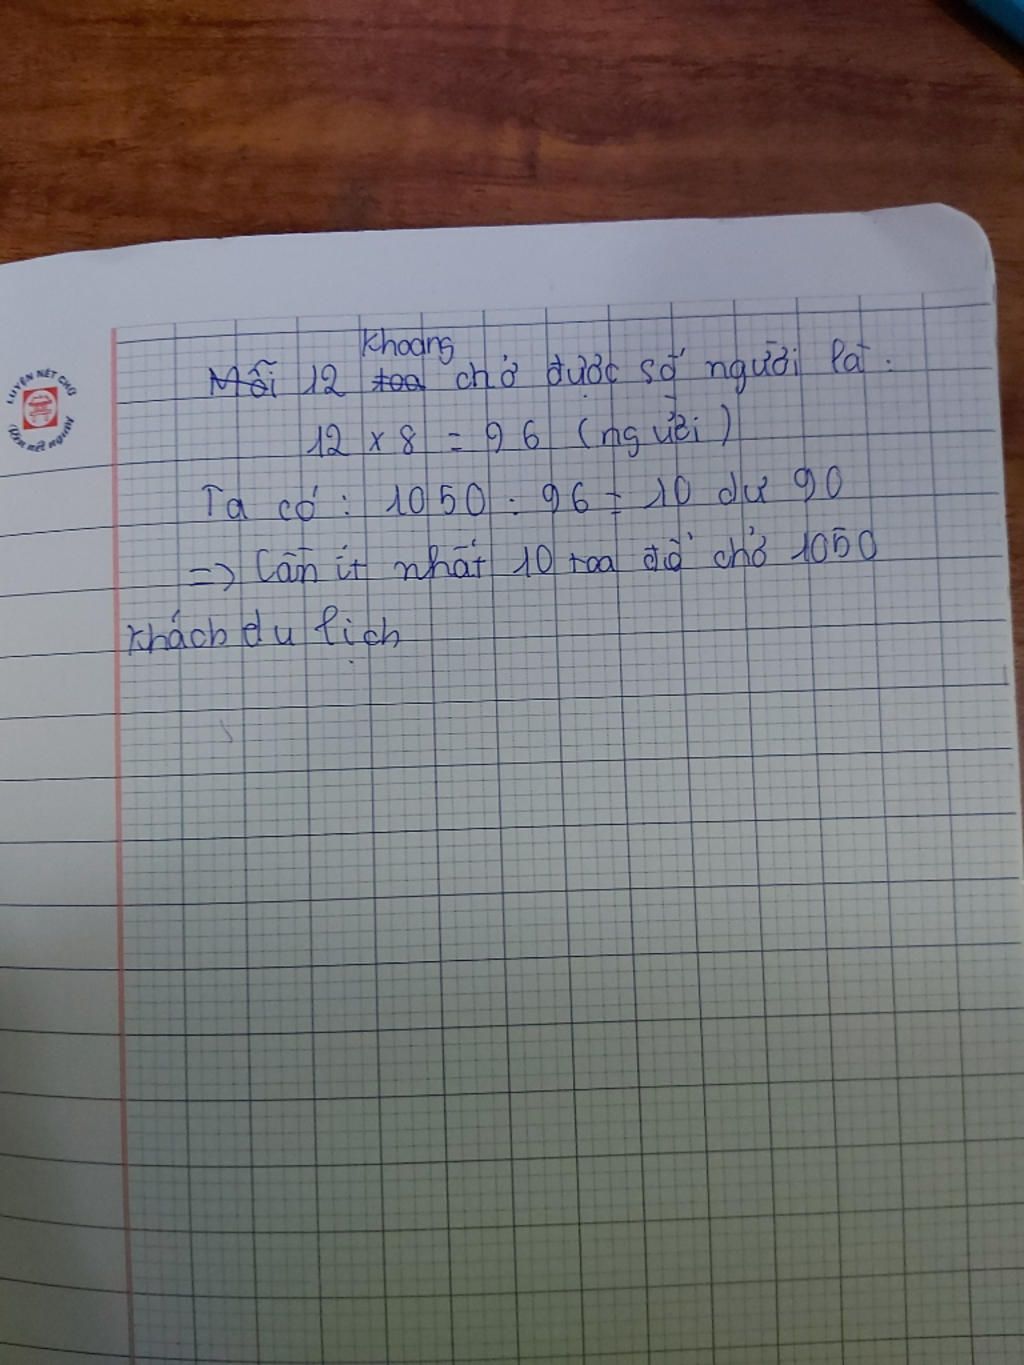 LUYỆN NÉT CHỮ
Rèn nết người
khoang
Mỗi 12 toa chở được số người là:
12 x 8 = 96 (người)
Ta có: 1050 : 96 = 10 dư 90
=> Cần ít nhất 10 toa để chở 1050
khách du lịch